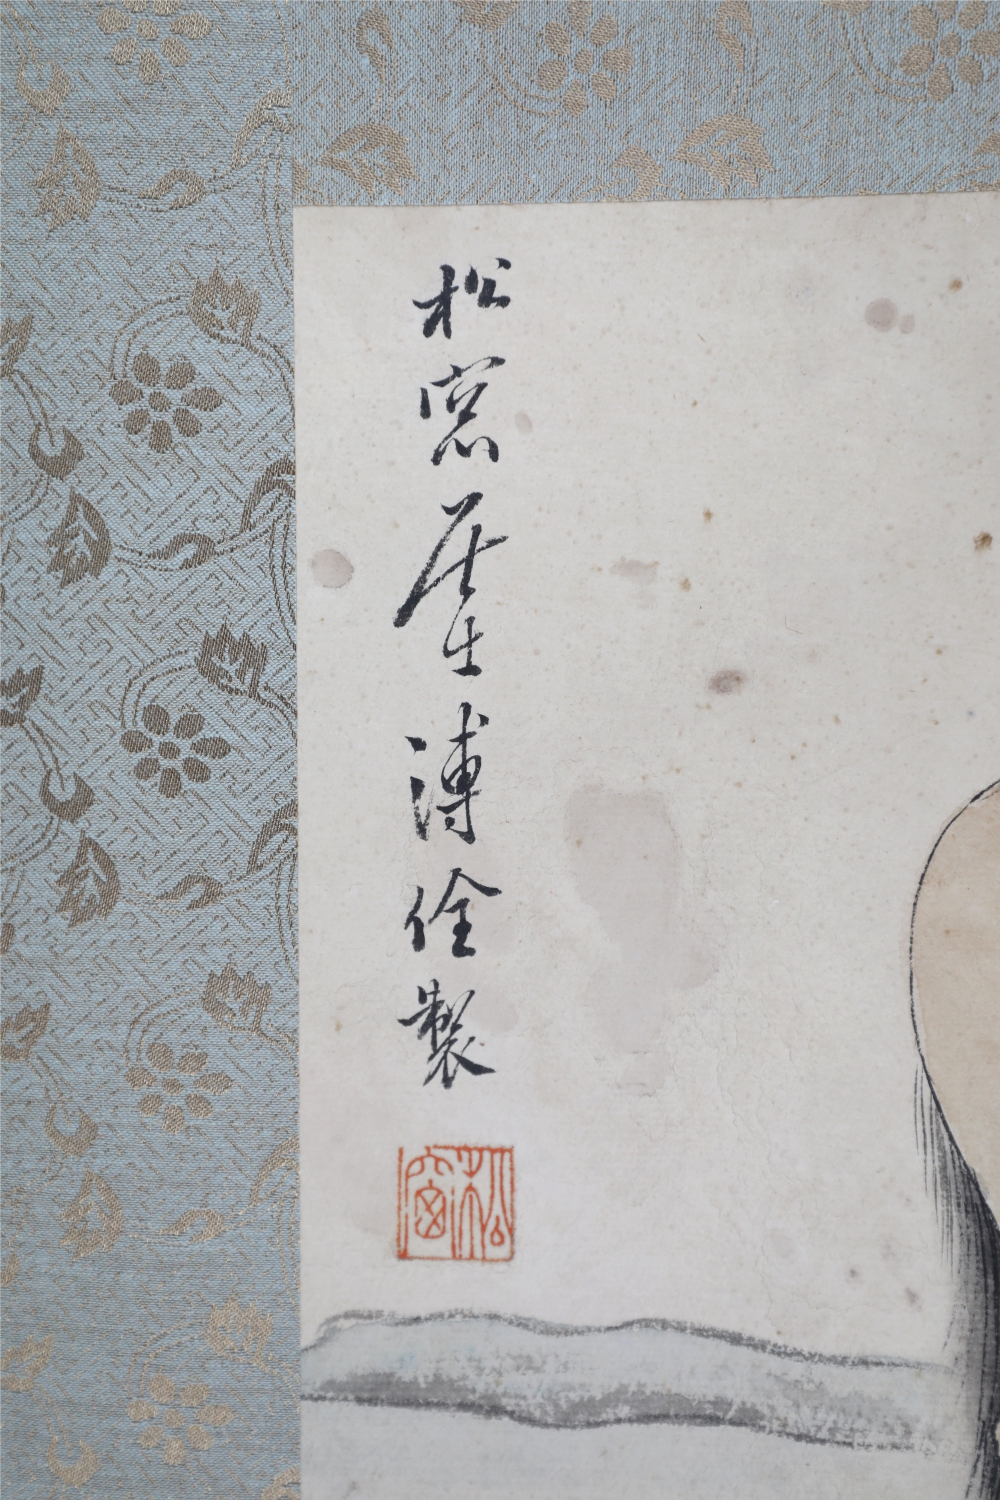 松窓居士溥佺製
松窗